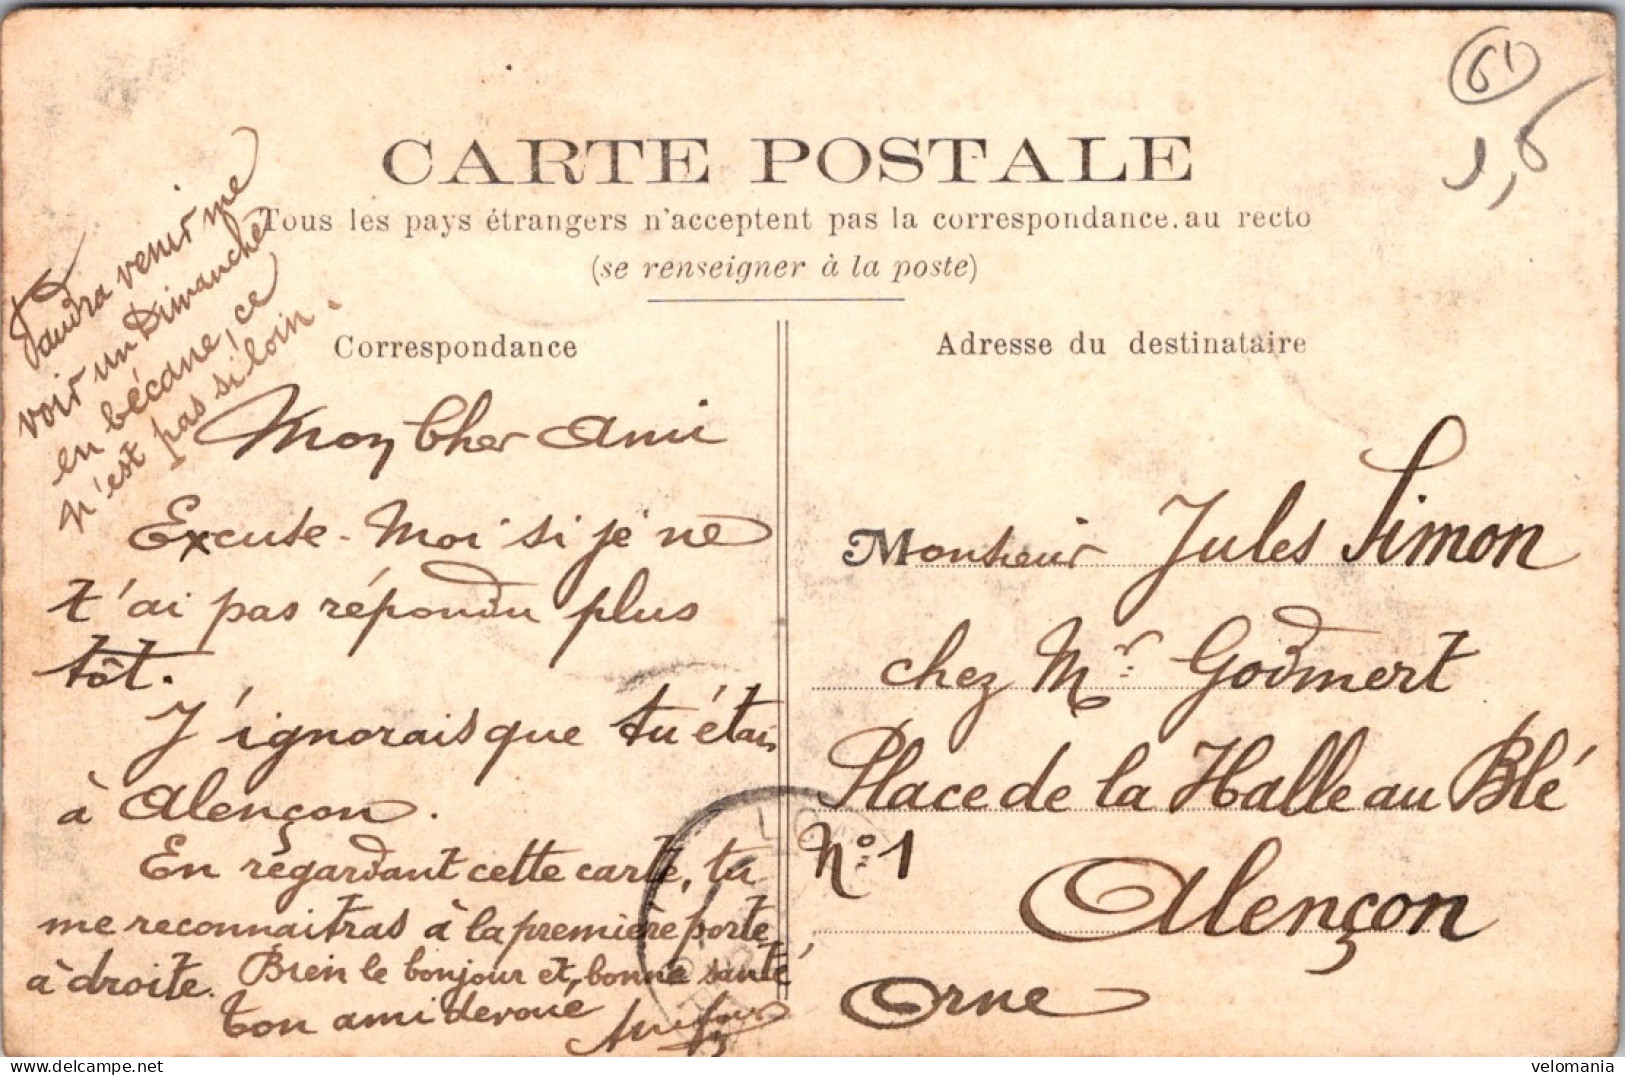 61
1,6
CARTE POSTALE
Tous les pays étrangers n'acceptent pas la correspondance. au recto
(se renseigner à la poste)
Correspondance
Adresse du destinataire
faudra venir me
voir un Dimanche
en bécane, ce
n'est pas si loin.
Mon Cher Ami
Excuse-Moi si je ne
t'ai pas répondu plus
tôt.
J'ignorais que tu étais
à Alençon.
En regardant cette carte, tu
me reconnaitras à la première porte
à droite. Bien le bonjour et, bonne santé
ton ami devoué
Monsieur Jules Simon
chez Mr Godmert
Place de la Halle au Blé
No 1
Alençon
Orne
velomania